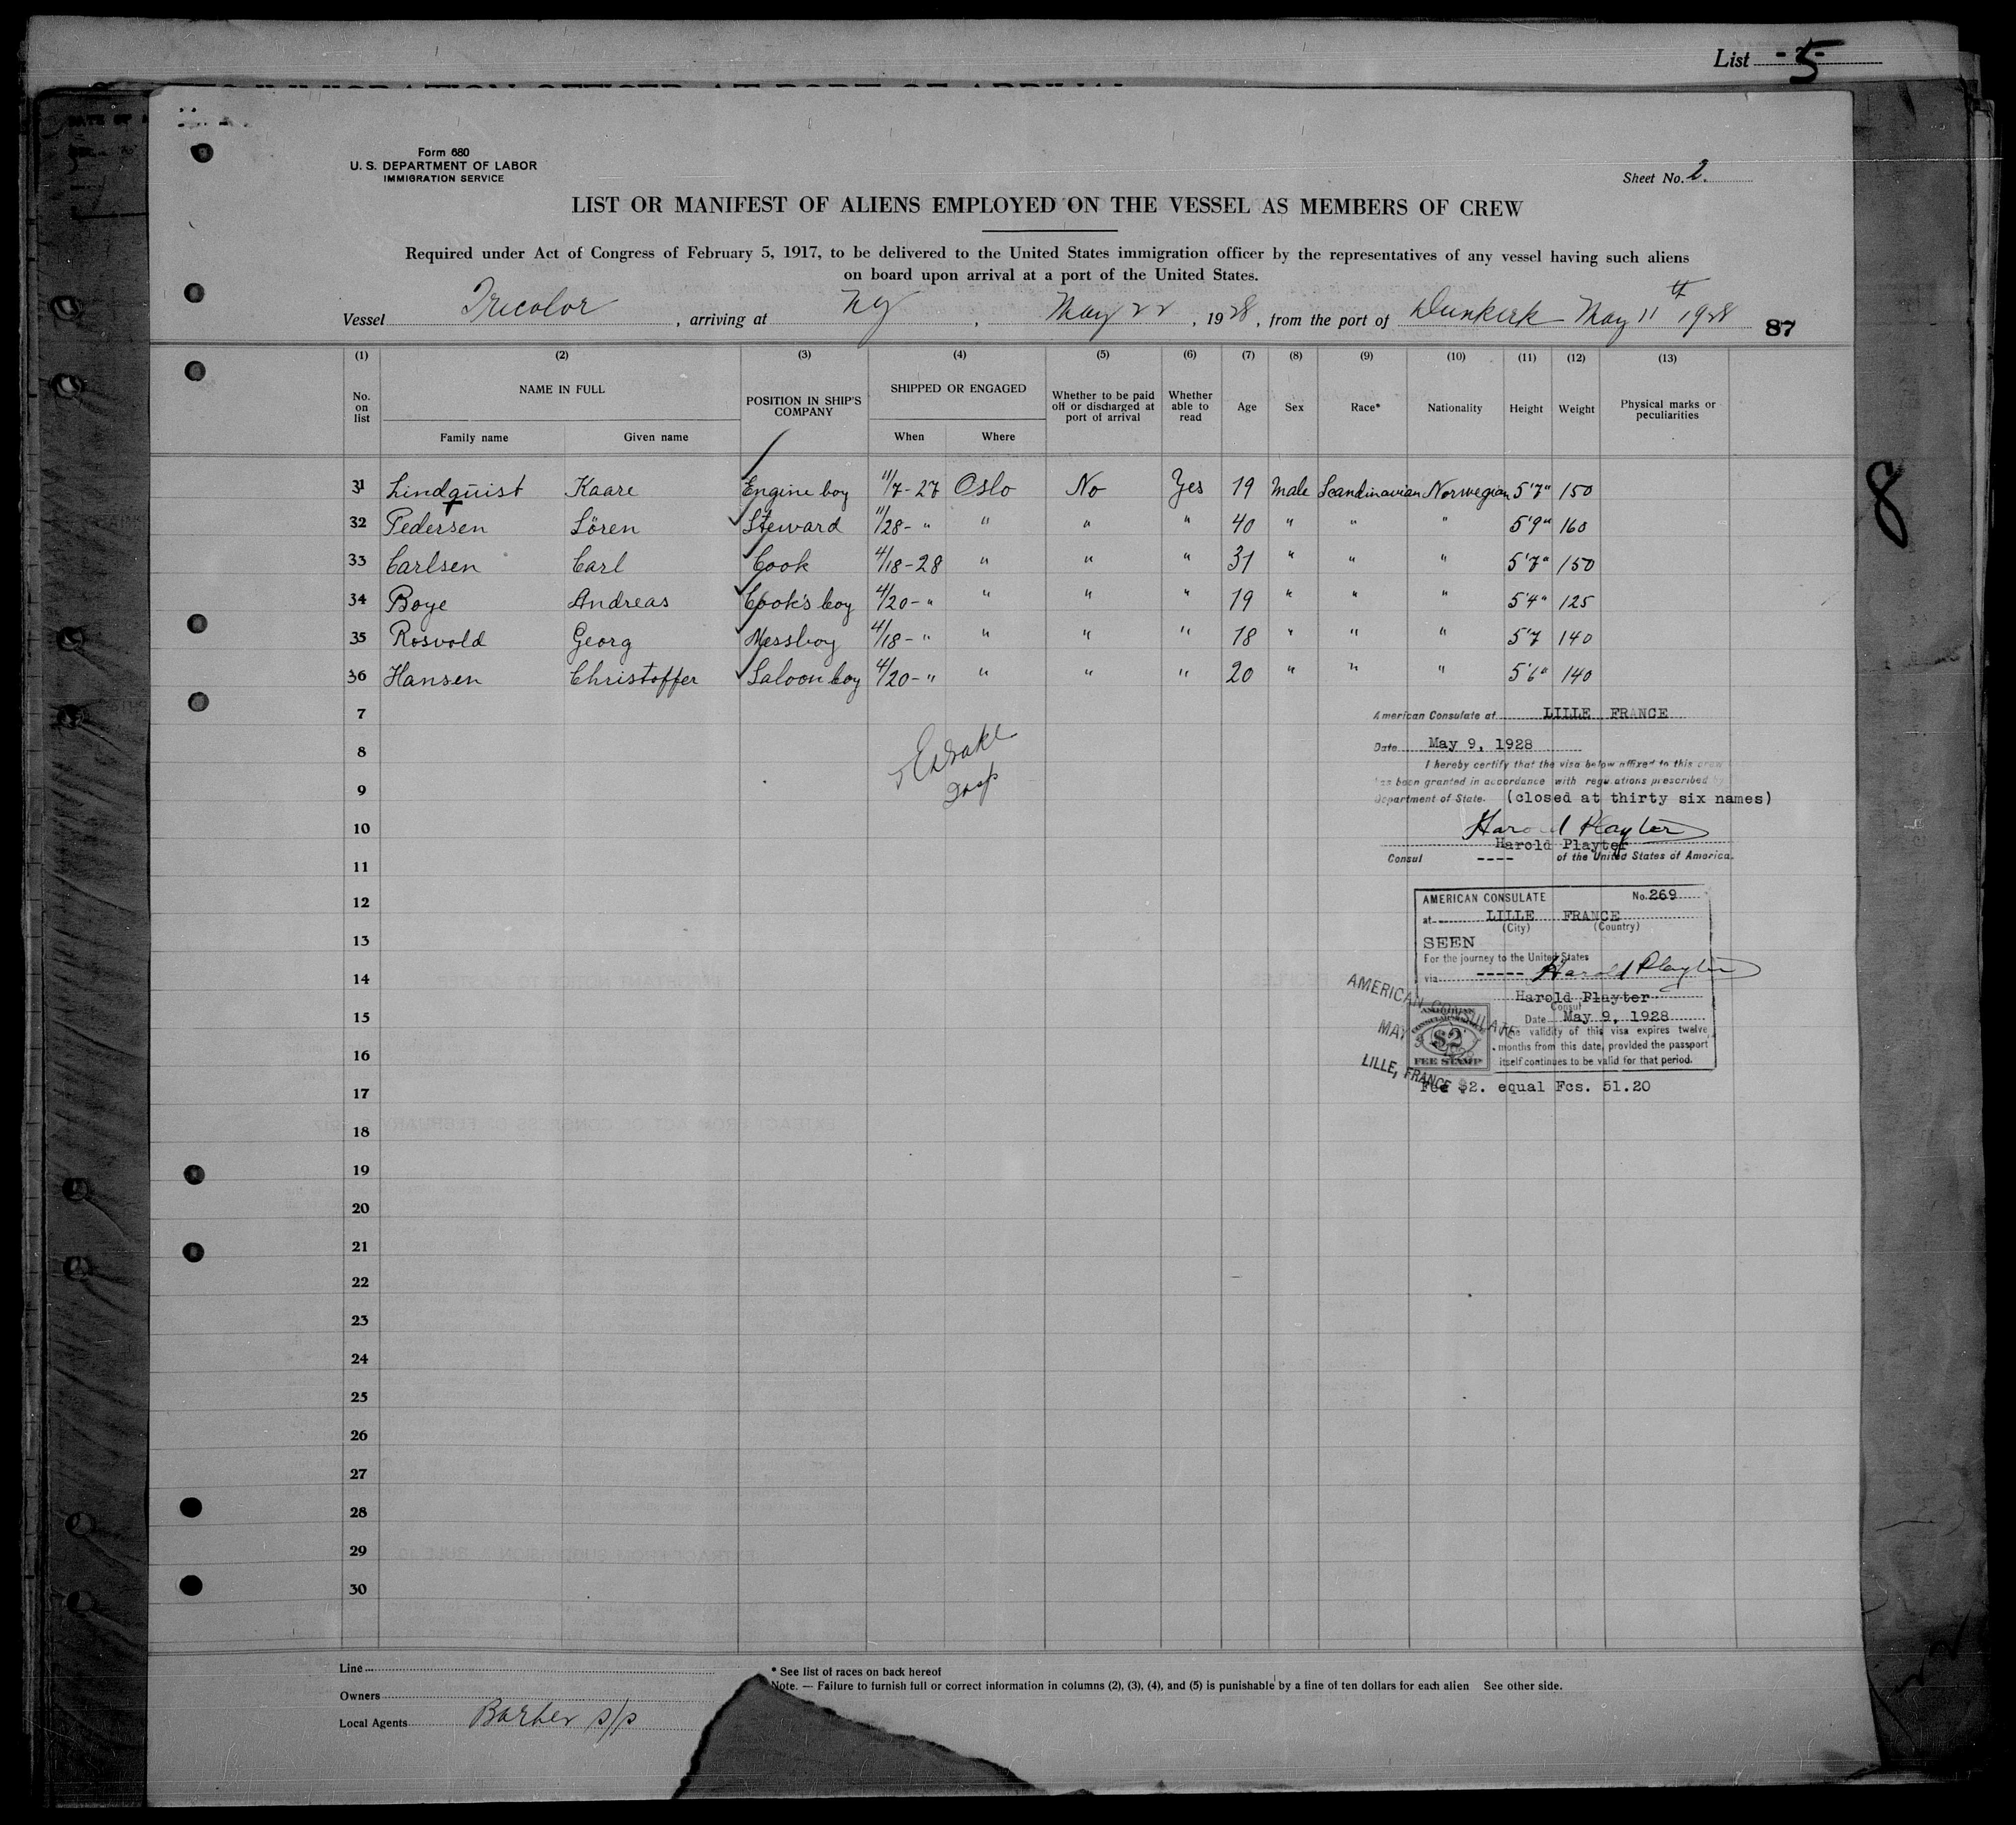 List - 5 -
Form 680
U. S. DEPARTMENT OF LABOR
IMMIGRATION SERVICE
Sheet No. 2.
LIST OR MANIFEST OF ALIENS EMPLOYED ON THE VESSEL AS MEMBERS OF CREW
Required under Act of Congress of February 5, 1917, to be delivered to the United States immigration officer by the representatives of any vessel having such aliens
on board upon arrival at a port of the United States.
Vessel Tricolor, arriving at NY, May 22, 1928, from the port of Dunkirk May 11th 1928
87
(1) (2) (3) (4) (5) (6) (7) (8) (9) (10) (11) (12) (13)
No. on list NAME IN FULL Family name Given name POSITION IN SHIP'S COMPANY SHIPPED OR ENGAGED When Where Whether to be paid off or discharged at port of arrival Whether able to read Age Sex Race* Nationality Height Weight Physical marks or peculiarities
31 Lindquist Kaare Engine boy 11/7-27 Oslo No Yes 19 Male Scandinavian Norwegian 5'7" 150
32 Pedersen Sören Steward 11/28- " " " " 40 " " " 5'9" 160
33 Carlsen Carl Cook 4/18-28 " " " 31 " " " 5'7" 150
34 Boye Andreas Cook's boy 4/20- " " " " 19 " " " 5'4" 125
35 Rosvold Georg Messboy 4/18- " " " " 18 " " " 5'7 140
36 Hansen Christoffer Saloon boy 4/20- " " " " 20 " " " 5'6" 140
8
7
8
9
10
11
12
13
14
15
16
17
18
19
20
21
22
23
24
25
26
27
28
29
30
American Consulate at LILLE FRANCE
Date May 9, 1928
I hereby certify that the visa below affixed to this crew
has been granted in accordance with regulations prescribed by
Department of State. (closed at thirty six names)
Harold Playter
Harold Playter
Consul ---- of the United States of America.
AMERICAN CONSULATE No. 269
at LILLE FRANCE
(City) (Country)
SEEN
For the journey to the United States
via ----- Harold Playter
Harold Playter
Consul
Date May 9, 1928
The validity of this visa expires twelve
months from this date, provided the passport
itself continues to be valid for that period.
AMERICAN CONSULATE
MAY 9 1928
LILLE, FRANCE
AMERICAN
CONSULAR SERVICE
$2
FEE STAMP
Fee $2. equal Fcs. 51.20
Line
Owners
Local Agents Barber S/S
* See list of races on back hereof
Note. — Failure to furnish full or correct information in columns (2), (3), (4), and (5) is punishable by a fine of ten dollars for each alien See other side.